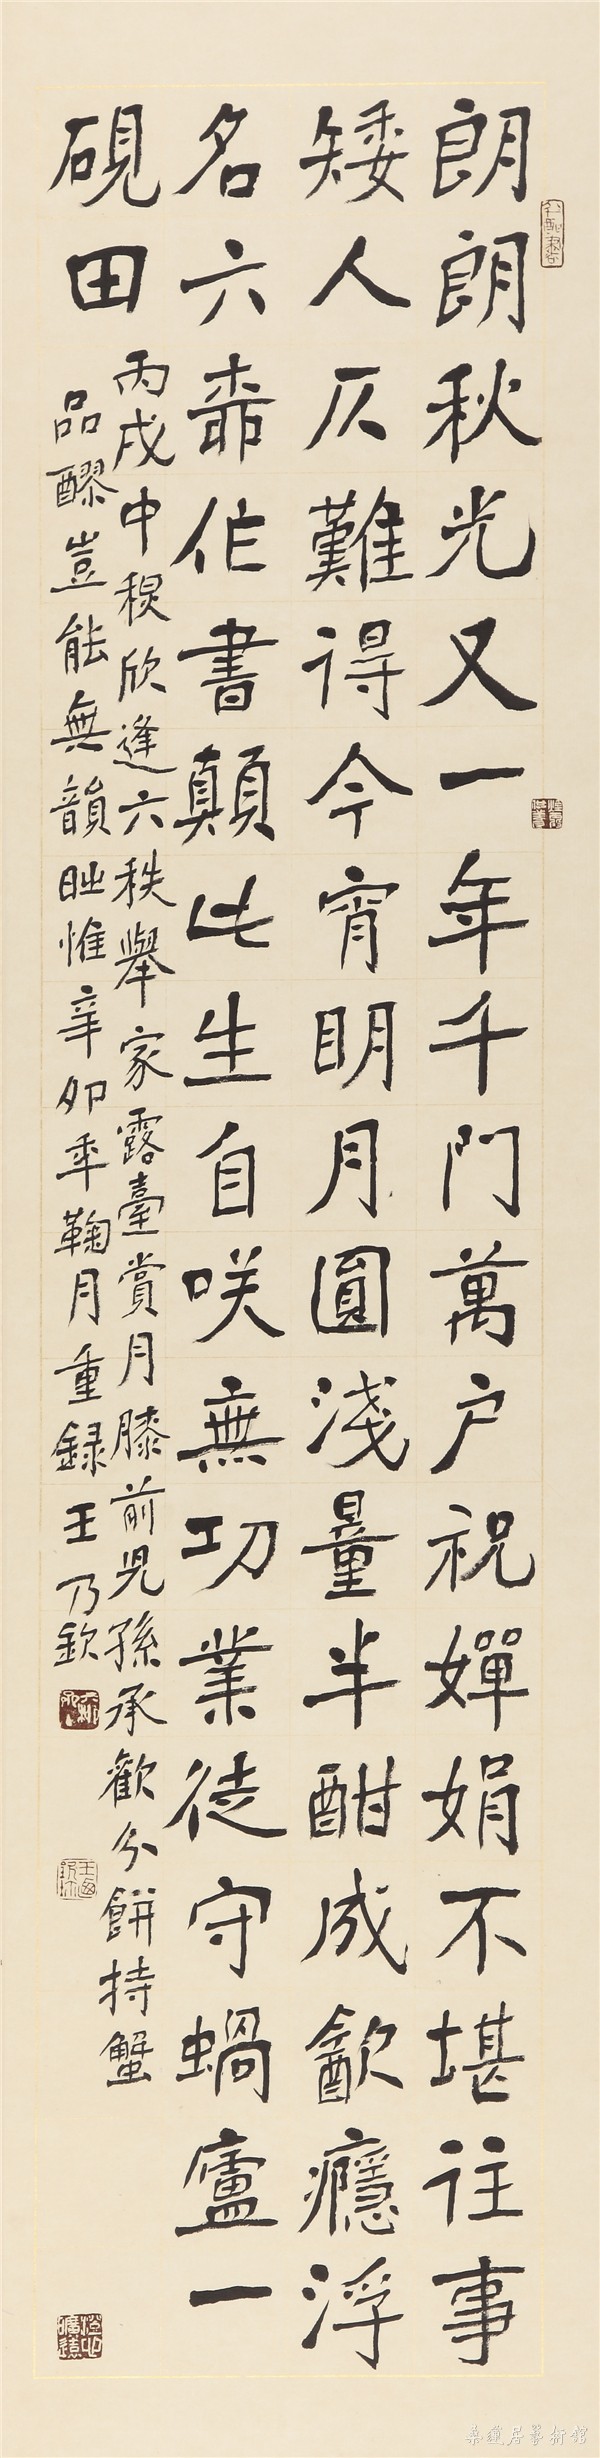 朗朗秋光又一年千門萬户祝嬋娟不堪往事
矮人仄難得今宵眀月圓淺量半酣成㱃癮浮
名六作書顛此生自咲無功業徒守蝸廬一
硯田
丙戌中秋欣逢六秩舉家露臺賞月膝前兒孫承歡分餅持蟹
品醪豈能無韻旹惟辛卯年鞠月重録王乃欽
桑蓮居藝術館